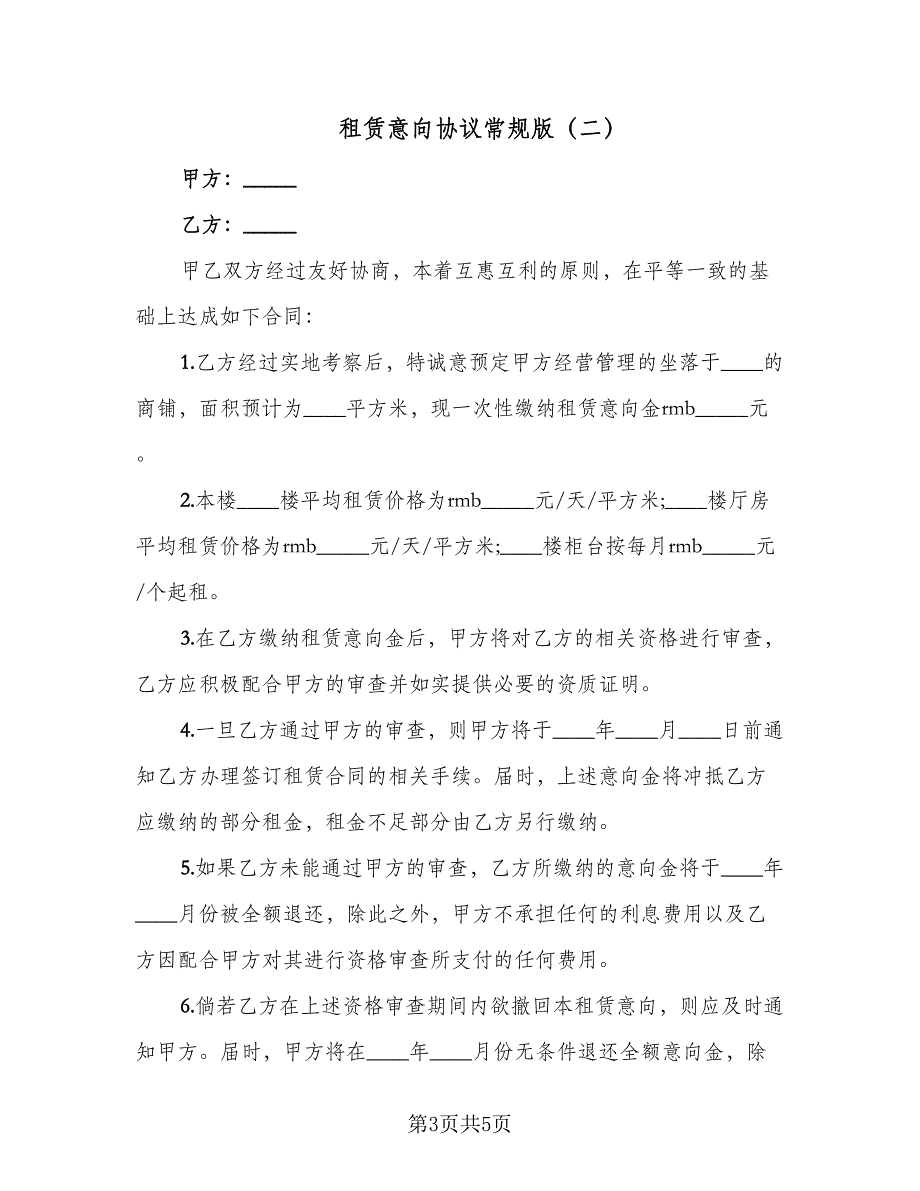 租赁意向协议常规版（二）
甲方：_____
乙方：_____
甲乙双方经过友好协商，本着互惠互利的原则，在平等一致的基
础上达成如下合同：
1.乙方经过实地考察后，特诚意预定甲方经营管理的坐落于____的
商铺，面积预计为____平方米，现一次性缴纳租赁意向金rmb_____元
。
2.本楼____楼平均租赁价格为rmb_____元/天/平方米;____楼厅房
平均租赁价格为rmb_____元/天/平方米;____楼柜台按每月rmb_____元
/个起租。
3.在乙方缴纳租赁意向金后，甲方将对乙方的相关资格进行审查，
乙方应积极配合甲方的审查并如实提供必要的资质证明。
4.一旦乙方通过甲方的审查，则甲方将于____年____月____日前通
知乙方办理签订租赁合同的相关手续。届时，上述意向金将冲抵乙方
应缴纳的部分租金，租金不足部分由乙方另行缴纳。
5.如果乙方未能通过甲方的审查，乙方所缴纳的意向金将于____年
____月份被全额退还，除此之外，甲方不承担任何的利息费用以及乙
方因配合甲方对其进行资格审查所支付的任何费用。
6.倘若乙方在上述资格审查期间内欲撤回本租赁意向，则应及时通
知甲方。届时，甲方将在____年____月份无条件退还全额意向金，除
第3页共5页